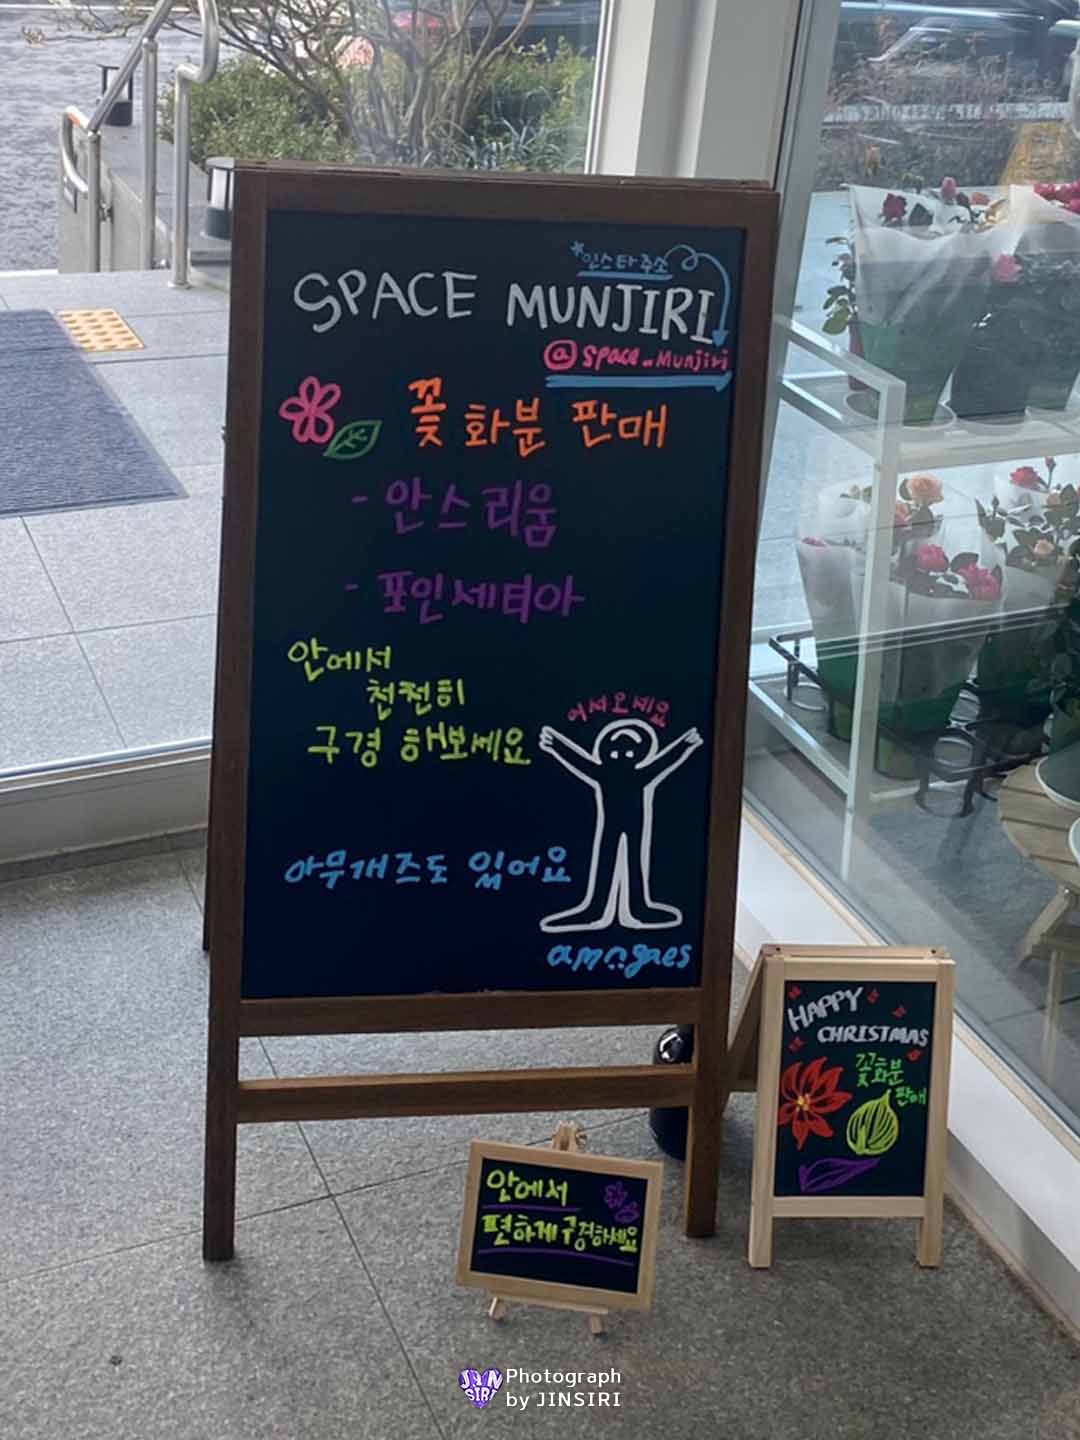 *인스타주소
SPACE MUNJIRI
@space_Munjiri
꽃 화분 판매
- 안스리움
- 포인세티아
안에서
천천히
구경 해보세요
어서오세요
아무개즈도 있어요
amogaes
HAPPY
CHRISTMAS
꽃화분
판매
안에서
편하게 구경하세요
JIN
SIRI
Photograph
by JINSIRI